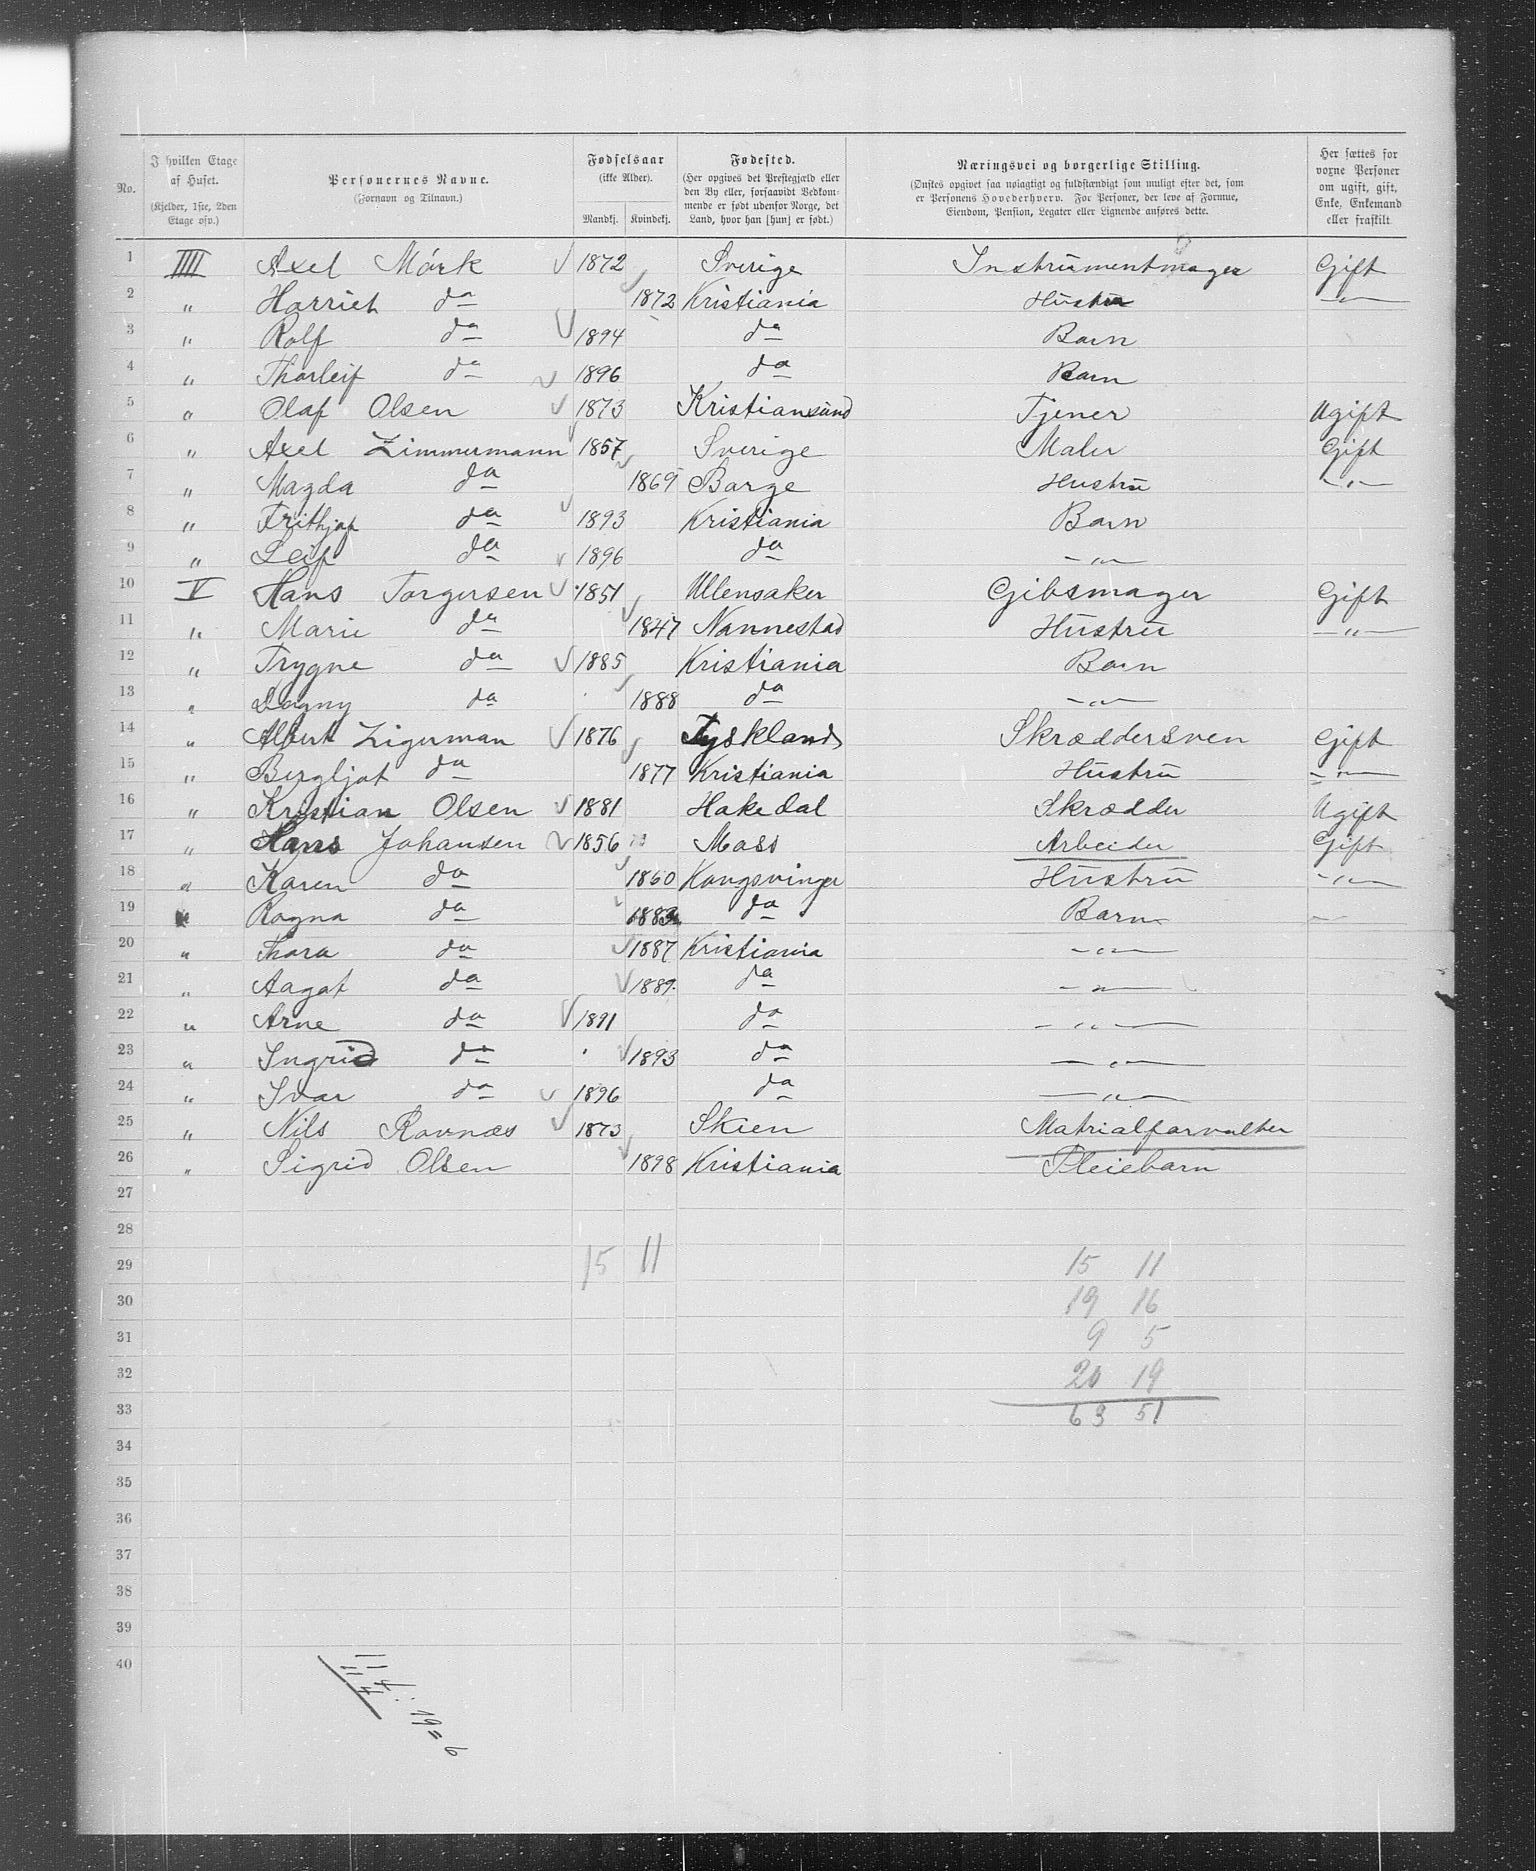 No. I hvilken Etage af Huset. (Kjelder, 1ste, 2den Etage osv.) Personernes Navne. (Fornavn og Tilnavn.) Fødselsaar (ikke Alder). Mandkj. Kvindekj. Fødested. (Her opgives det Prestegjæld eller den By eller, forsaavidt Vedkommende er født udenfor Norge, det Land, hvor han [hun] er født.) Næringsvei og borgerlige Stilling. (Ønskes opgivet saa nøiagtigt og fuldstændigt som muligt efter det, som er Personens Hovederhverv. For Personer, der leve af Formue, Eiendom, Pension, Legater eller Lignende anføres dette. Her sættes for voxne Personer om ugift, gift, Enke, Enkemand eller fraskilt.
1 IIII Axel Mörk 1872 Sverige Instrumentmager Gift
2 " Harriet do 1872 Kristiania Hustru — " —
3 " Rolf do 1894 do Barn
4 " Thorleif do 1896 do Barn
5 " Olaf Olsen 1873 Kristiansund Tjener Ugift
6 " Axel Zimmermann 1857 Sverige Maler Gift
7 " Magda do 1869 Borge Hustru — " —
8 " Frithjof do 1893 Kristiania Barn
9 " Leif do 1896 do — " —
10 V Hans Torgersen 1851 Ullensaker Gibsmager Gift
11 " Marie do 1847 Nannestad Hustru — " —
12 " Trygve do 1885 Kristiania Barn
13 " Dagny do 1888 do — " —
14 " Albert Zigerman 1876 Tyskland Skræddersven Gift
15 " Bergljot do 1877 Kristiania Hustru — " —
16 " Kristian Olsen 1881 Hakedal Skrædder Ugift
17 " Hans Johansen 1856 Moss Arbeider Gift
18 " Karen do 1860 Kongsvinger Hustru — " —
19 " Ragna do 1883 do Barn —
20 " Thora do 1887 Kristiania — " —
21 " Aagot do 1889 do — " —
22 " Arne do 1891 do — " —
23 " Ingrid do 1893 do — " —
24 " Ivar do 1896 do — " —
25 " Nils Ravnæs 1873 Skien Matrialforvalter
26 " Sigrid Olsen 1898 Kristiania Pleiebarn
27
28
29 15 11 15 11
30 19 16
31 9 5
32 20 19
33 63 51
34
35
36
37
38
39
40
114 : 19 = 6
114